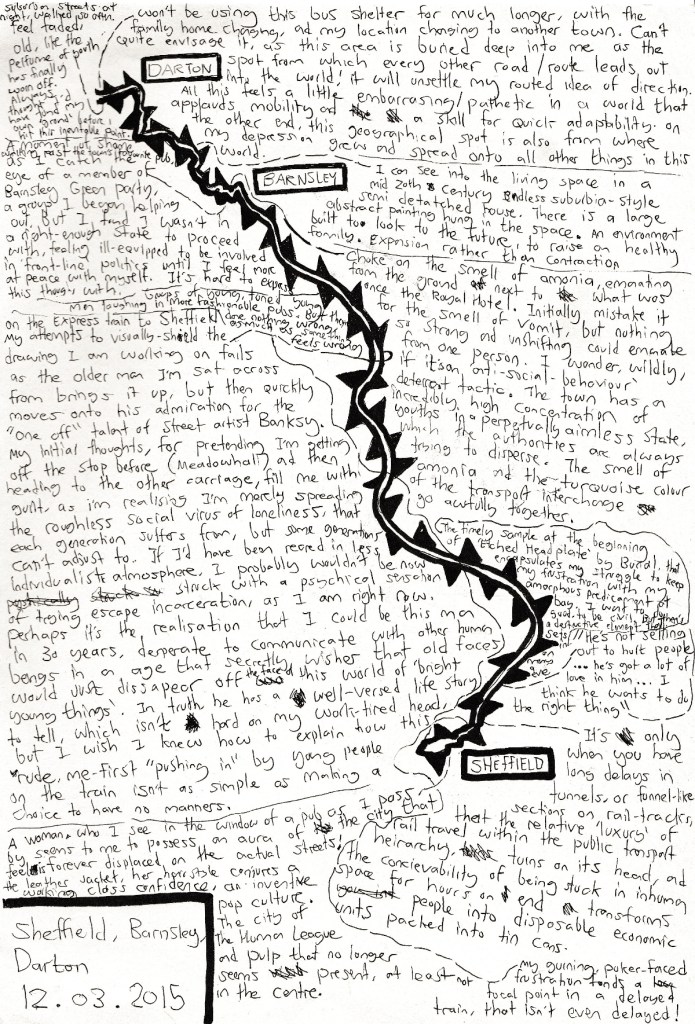 suburban streets at
night, walked so often
feel faded,
old, like the
perfume of youth
has finally
worn off.
Always
thought I'd
have found my
own 'ground' before I
hit this inevitable point.
won't be using this bus shelter for much longer, with the
family home changing, and my location changing to another town. Can't
quite envisage it, as this area is buried deep into me as the
spot from which every other road/route leads out
into the world; it will unsettle my routed idea of direction.
All this feels a little embarrassing/pathetic in a world that
applauds mobility and a skill for quick adaptability. on
the other end, this geographical spot is also from where
my depression grows and spread onto all other things in this
world.
DARTON
A moment of shame
walking past the town's
pub,
as I catch the
eye of a member of
Barnsley Green party,
a group I began helping
out, but I found I wasn't in
a right-enough state to proceed
with, feeling ill-equipped to be involved
in front-line politics until I feel more
at peace with myself. It's hard to express
this though, with groups of young, toned young
men laughing in more fashionable pubs. But they've
done nothing wrong,
as much as something
feels wrong
BARNSLEY
I can see into the living space in a
mid 20th Century Endless suburbia-style
semi detatched house. There is a large
abstract painting hung in the space. An environment
built to look to the future; to raise an healthy
family. Expansion rather than contraction
Choke on the smell of amonia, emanating
from the ground next to what was
once the Royal Hotel. Initially mistake it
for the smell of vomit, but nothing
so strong and unshifting could emanate
from one person. I wonder, wildly,
if it's an 'anti-social-behaviour'
deterrent tactic. The town has an
incredibly high concentration of
youths in a perpetually aimless state,
which the authorities are always
trying to disperse. The smell of
amonia and the turquoise colour
of the transport interchange
go awfully together.
on the Express train to Sheffield
My attempts to visually-shield the
drawing I am working on fails
as the older man I'm sat across
from brings it up, but then quickly
moves onto his admiration for the
"one off" talent of street artist Banksy.
My initial thoughts, for pretending I'm getting
off the stop before (Meadowhall) and then
heading to the other carriage, fill me with
guilt, as I'm realising I'm merely spreading
the roughless social virus of loneliness, that
each generation suffers from, but some generations
can't adjust to. If I'd have been reared in less
individualist atmosphere, I probably wouldn't be now
struck with a psychical sensation
of trying escape incarceration, as I am right now.
Perhaps it's the realisation that I could be this man
in 30 years, desperate to communicate with other human
beings in an age that secretly wishes that old faces
would just dissapear off the face of this world of 'bright
young things'. In truth he has a well-versed life story
to tell, which isn't hard on my work-tired head,
but I wish I knew how to explain how this
rude, me-first "pushing in" by young people
on the train isn't as simple as making a
choice to have no manners.
The timely sample at the beginning
of 'Etched Headplate' by Burial, that
encapsulates my struggle to keep
my frustration with my
amorphous predicament at
bay. I want to
be civil, but there's
a destructive element that
sets in
"He's not selling
out to hurt people
... he's got a lot of
love in him... I
think he wants to do
the right thing"
SHEFFIELD
It's only
when you have
long delays in
tunnels, or funnel-like
sections on rail-tracks,
that the relative 'luxury' of
rail travel within the public transport
heirarchy, turns on its head, and
the concievability of being stuck in inhuman
space for hours on end transforms
people into disposable economic
units packed into tin cans.
My gurning, poker-faced
frustration finds a
focal point in a delayed
train, that isn't even delayed!
A woman, who I see in the window of a pub as I pass
by, seems to me to possess an aura of the city that
feels forever displaced on the actual streets;
the leather jacket, her hairstyle conjures a
working class confidence, an inventive
pop culture.
The city of
The Human League
and pulp that no longer
seems present, at least not
in the centre.
Sheffield, Barnsley,
Darton
12.03.2015